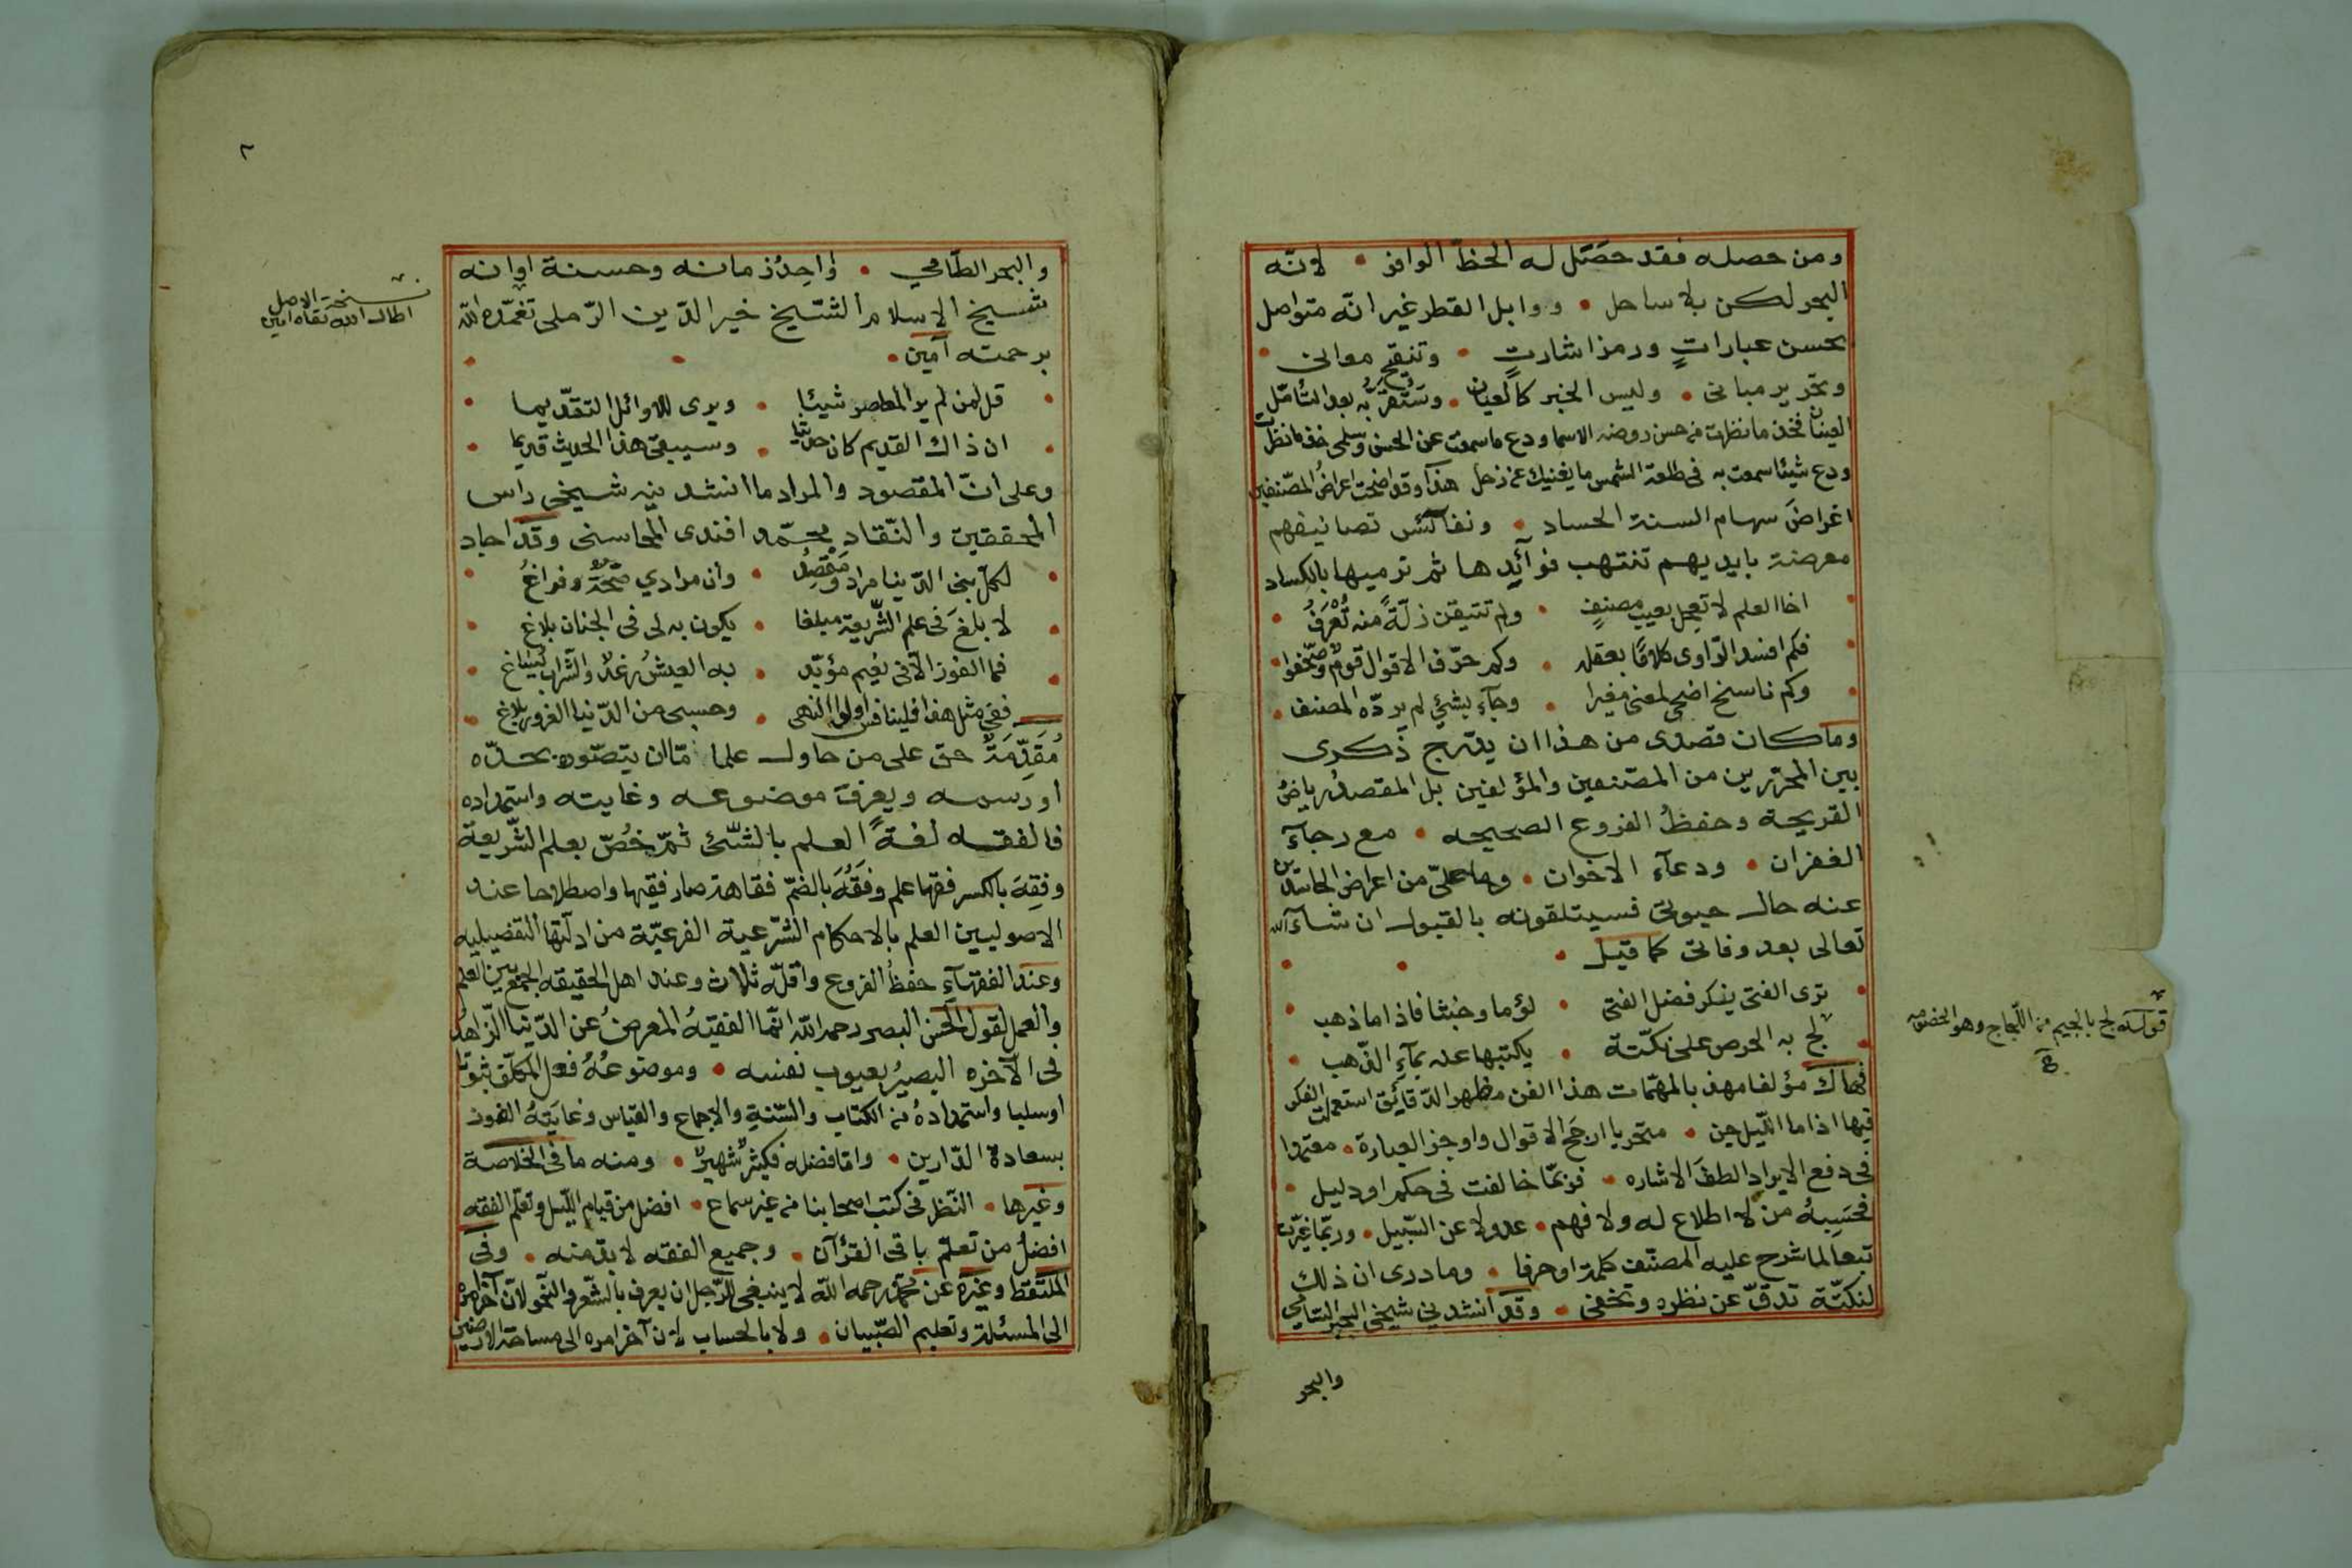 ومن حصله فقد حصل له الحظّ الوافر • لانّه
البحر لكن بلا ساحل • ووابل القطر غير انّه متواصل
بحسن عباراتٍ ورمز اشارتٍ • وتنقيح معانى •
وتحرير مبانى • وليس الخبر كالعيان • وستقرّ به بعد التأمّل
العينان فخذ ما نظرت من حسن روضه الاسما ودع ما سمعت عن الحسن وسلمى خذ ما نظرت
ودع شيئا سمعت به فى طلعة الشمس ما يغنيك عن زحل هذا وقد اضحت اعراض المصنفين
اغراضَ سهام السنة الحساد • ونفائس تصانيفهم
معرضة بايديهم تنتهب فوائدها ثم ترميها بالكساد
• اخا العلم لا تعجل بعيب مصنفٍ • ولم تتيقن زلّةً منه تُعرَفُ •
• فكم افسد الرّاوى كلامًا بعقله • وكم حرّف الاقوال قومٌ وصحّفوا •
• وكم ناسخ اضحى لمعنى مغيرا • وجاء بشئ لم يردّه المصنف •
وما كان قصدى من هذا ان يدرج ذكرى
بين المحررين من المصنفين والمؤلفين بل المقصد رياضُ
القريحة وحفظُ الفروع الصحيحه • مع رجاء
الغفران • ودعاء الاخوان • وما علىّ من اعراض الحاسدين
عنه حال حيوتى فسيتلقونه بالقبول ان شاء الله
تعالى بعد وفاتى كما قيل • • •
• ترى الفتى ينكر فضل الفتى • لؤما وخبثا فاذا ما ذهب •
• لجّ به الحرص على نكتة • يكتبها عنه بماء الذّهب •
فهاك مؤلفا مهذبا لمهمّات هذا الفن مظهرا لدقائق استعملت الفكر
فيها اذا ما الليل جن • متحريا ارجح الاقوال واوجز العبارة • معتمدا
فى دفع الايراد الطفَ الاشاره • فربّما خالفت فى حكم او دليل •
فحسبه من لا اطلاع له ولا فهم • عدولا عن السّبيل • وربّما غيّرت
تبعا لما شرح عليه المصنّف كلمة او حرفا • وما درى ان ذلك
لنكتّة تدقّ عن نظره وتخفى • وقد انشدنى شيخى الحبر السامى
والبحر
قوله لجّ بالجيم من اللّجاج وهو الخصومة
٢
والبحر الطّامي • واحِدُ زمانه وحسنة اوانه
شيخ الاسلام الشيخ خير الدّين الرّملى تغمّده الله
برحمته آمين • • •
نسخة الاصل
اطال الله بقاه امين
• قل لمن لم ير المعاصر شيئا • ويرى للاوائل التقديما •
• ان ذاك القديم كان حديثا • وسيبقى هذا الحديث قديما •
وعلى انّ المقصود والمراد ما انشدنيه شيخى راس
المحققين والنّقاد محمّد افندى المحاسنى وقد اجاد
• لكل بنى الدّنيا مراد ومقصدُ • وان مرادي صحّةٌ وفراغُ •
• لابلغ فى علم الشّريعة مبلغا • يكون به لى فى الجنان بلاغ •
• فما الفوز الا فى نعيم مؤبّد • به العيش رغدٌ والشراب يُساغ •
ففى مثل هذا فلينافس اولوا النهى • وحسبى من الدّنيا الغرور بلاغ •
مُقَدّمَةٌ حق على من حاول علما مّا ان يتصّوره بحدّه
او رسمه ويعرف موضوعه وغايته واستمداده
فالفقه لغةً العلم بالشّئ ثمّ خُصّ بعلم الشّريعة
وفقِهَ بالكسر فقها علم وفقُهَ بالضمّ فقاهة صار فقيها واصطلاحا عند
الاصوليين العلم بالاحكام الشّرعية الفرعيّة من ادلّتها التفصيليه
وعند الفقهاء حفظُ الفروع واقلّه ثلاث وعند اهل الحقيقه الجمع بين العلم
والعمل لقول الحسن البصرى رحمه الله انّما الفقيهُ المعرضُ عن الدّنيا الزّاهدُ
فى الآخره البصيرُ بعيوب نفسه • وموضوعُهُ فعل المكلّف ثبوتا
اوسلبا واستمدادهُ من الكتاب والسّنةِ والاجماع والقياس وغايتهُ الفوز
بسعادة الدّارين • وامّا فضله فكثيرٌ شهيرٌ • ومنه ما فى الخلاصة
وغيرها • النّظر فى كتب اصحابنا من غير سماع • افضل من قيام اللّيل وتعلّم الفقه
افضلُ من تعلّم باقى القرآن • وجميع الفقه لا بدّ منه • وفى
الملتقط وغيره عن محمّد رحمه الله لا ينبغى للرّجل ان يعرف بالشّعر والنّحو لانّ آخر امره
الى المسئلة وتعليم الصّبيان • ولا بالحساب لان آخر امره الى مساحة الارضين